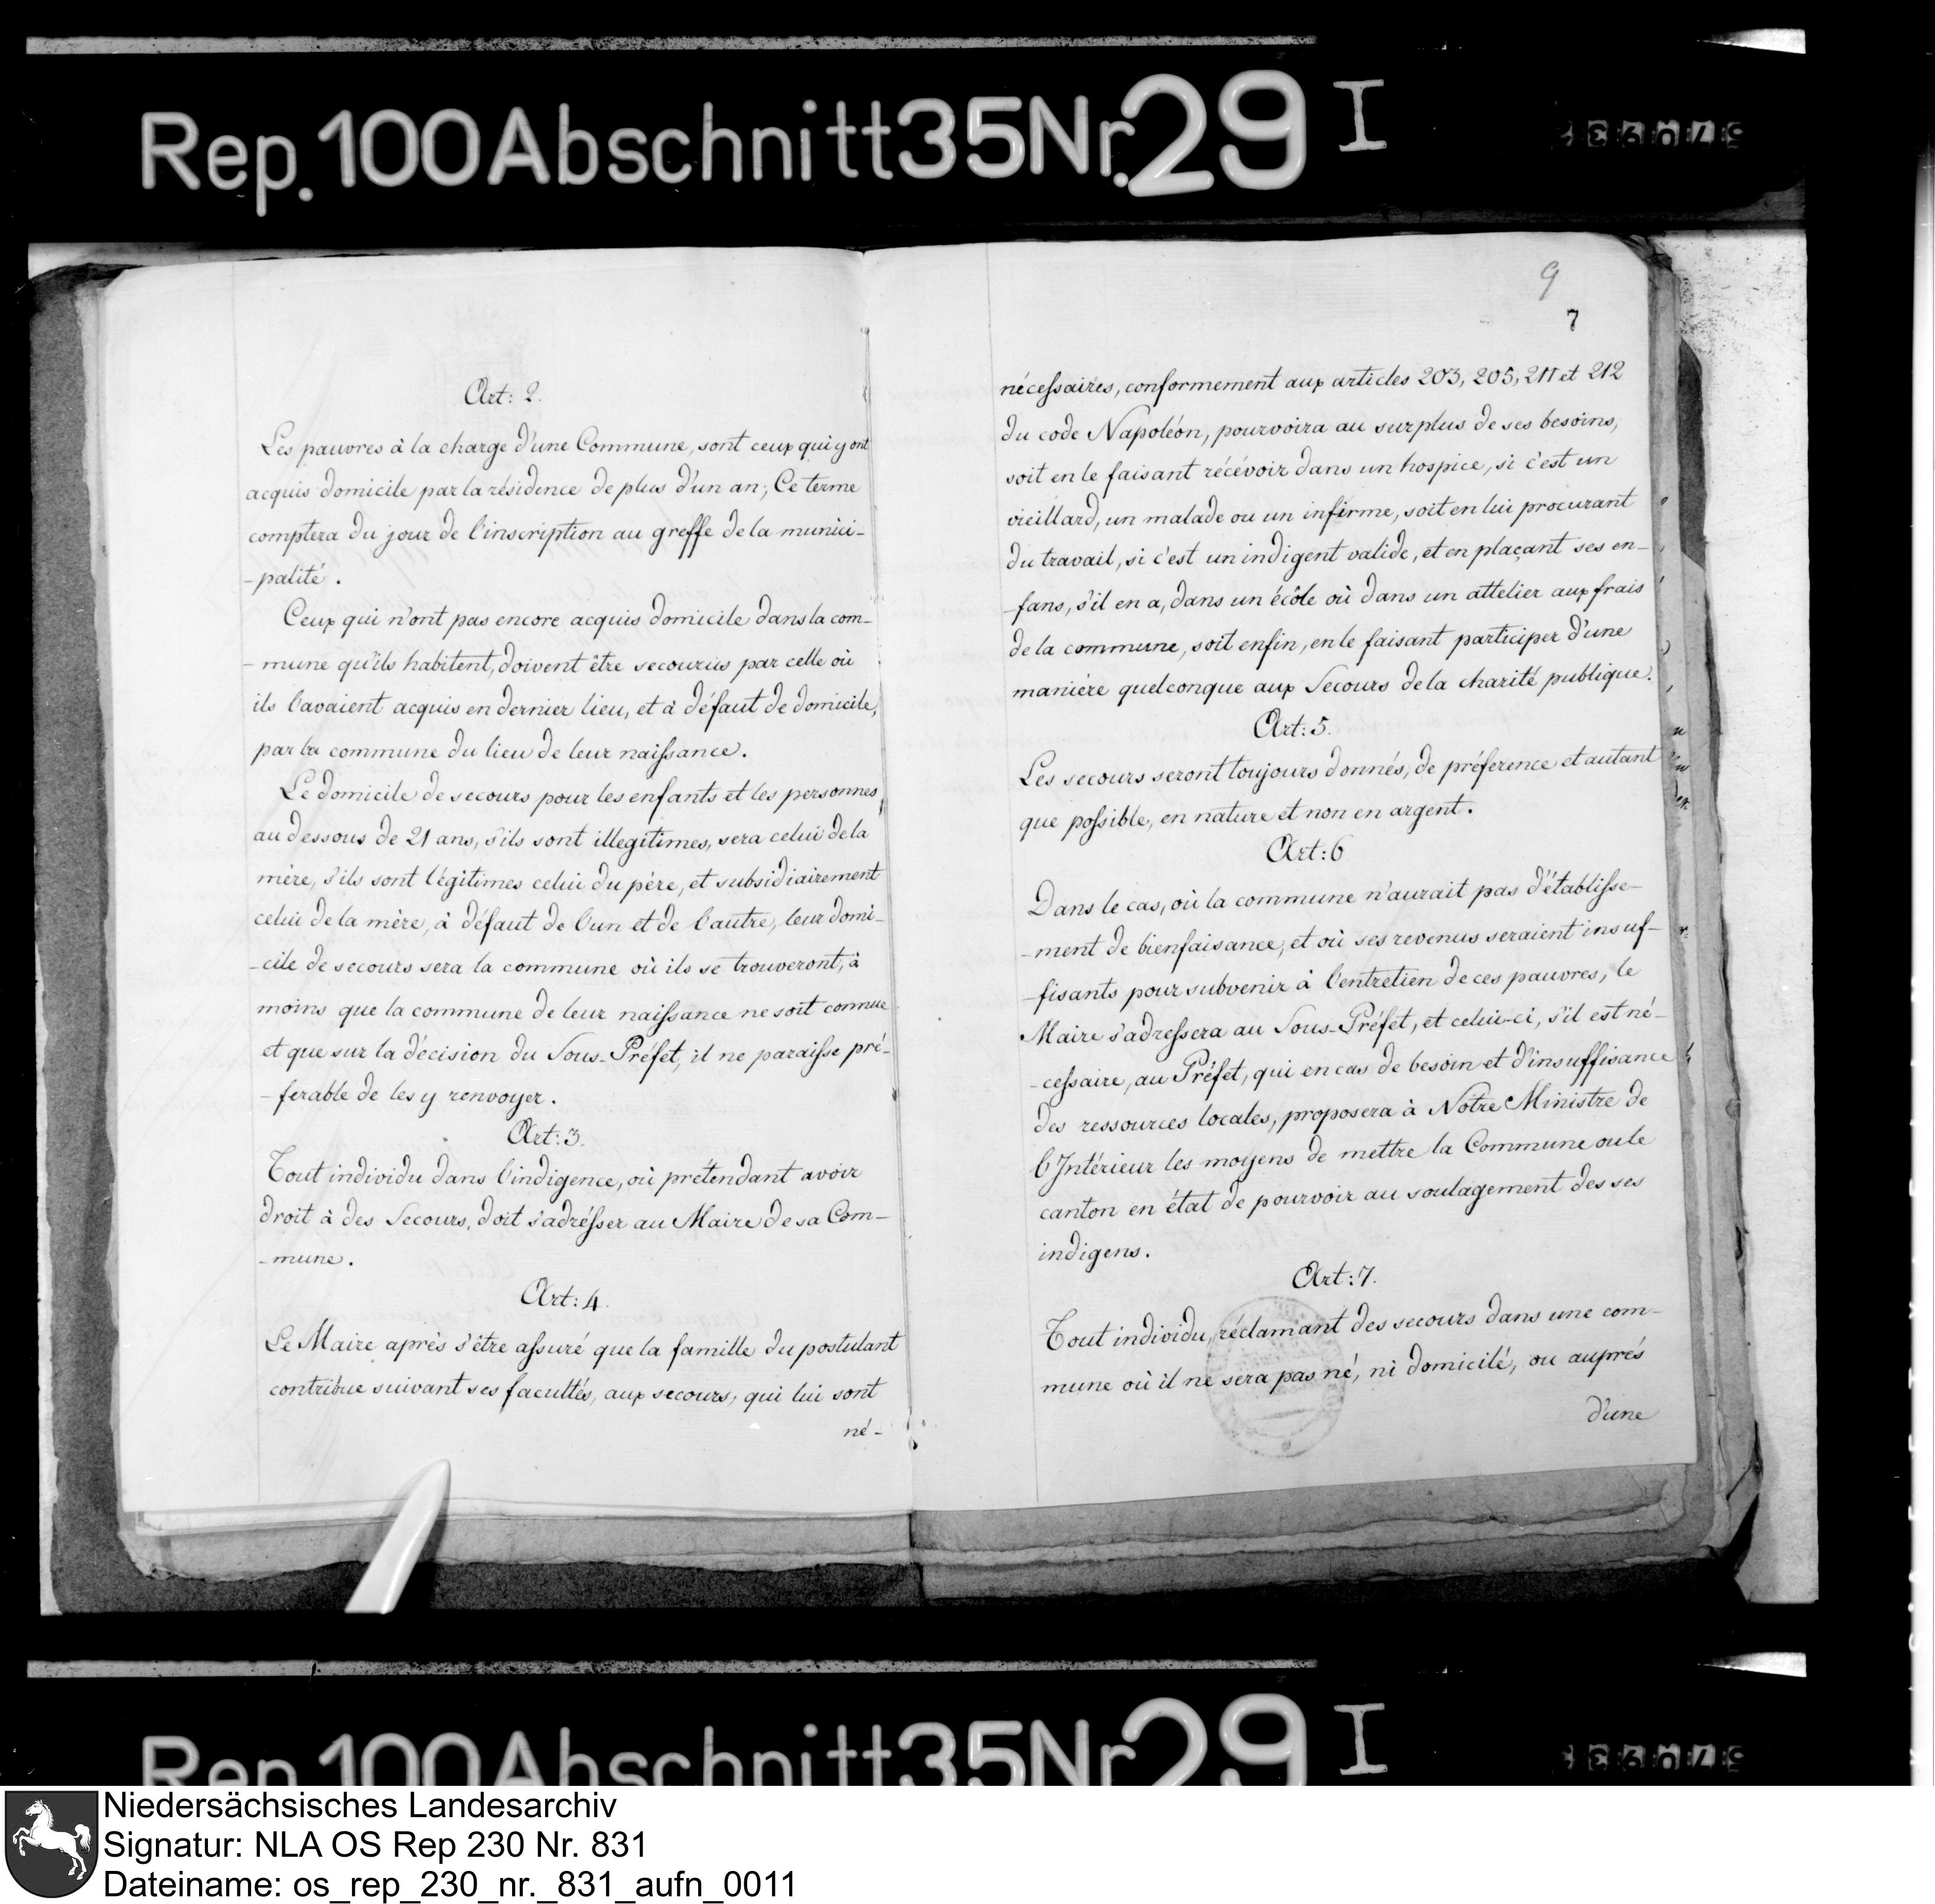 Rep. 100 Abschnitt 35 Nr. 29 I
Art: 2.
Les pauvres à la charge d'une Commune, sont ceux qui y ont
acquis domicile par la résidence de plus d'un an; Ce terme
comptera du jour de l'inscription au greffe de la munici-
-palité.
Ceux qui n'ont pas encore acquis domicile dans la com-
-mune qu'ils habitent, doivent être secourus par celle où
ils l'avaient acquis en dernier lieu, et à défaut de domicile,
par la commune du lieu de leur naissance.
Le domicile de secours pour les enfants et les personnes
au dessous de 21 ans, s'ils sont illegitimes, sera celui de la
mère, s'ils sont légitimes celui du père, et subsidiairement
celui de la mère, à défaut de l'un et de l'autre, leur domi-
-cile de secours sera la commune où ils se trouveront, à
moins que la commune de leur naissance ne soit connue
et que sur la décision du Sous-Préfet, il ne paraisse pré-
-ferable de les y renvoyer.
Art: 3.
Tout individu dans l'indigence, où prétendant avoir
droit à des Secours, doit s'adrésser au Maire de sa Com-
-mune.
Art: 4.
Le Maire après s'être assuré que la famille du postulant
contribue suivant ses facultés, aux secours, qui lui sont
né-
9
7
nécessaires, conformement aux articles 203, 205, 211 et 212
du code Napoléon, pourvoira au surplus de ses besoins,
soit en le faisant récévoir dans un hospice, si c'est un
vieillard, un malade ou un infirme, soit en lui procurant
du travail, si c'est un indigent valide, et en plaçant ses en-
-fans, s'il en a, dans un école où dans un attelier aux frais
de la commune, soit enfin, en le faisant participer d'une
manière quelconque aux Secours de la charité publique.
Art: 5.
Les secours seront toujours donnés, de préference et autant
que possible, en nature et non en argent.
Art: 6
Dans le cas, où la commune n'aurait pas d'établisse-
-ment de bienfaisance, et où ses revenus seraient insuf-
-fisants pour subvenir à l'entretien de ces pauvres, le
Maire s'adressera au Sous-Préfet, et celui-ci, s'il est né-
-cessaire, au Préfet, qui en cas de besoin et d'insuffisance
des ressources locales, proposera à Notre Ministre de
l'Intérieur les moyens de mettre la Commune ou le
canton en état de pourvoir au soulagement des ses
indigens.
Art: 7.
Tout individu, réclamant des secours dans une com-
mune où il ne sera pas né, ni domicilé, ou auprés
d'une
Rep. 100 Abschnitt 35 Nr. 29 I
Niedersächsisches Landesarchiv
Signatur: NLA OS Rep 230 Nr. 831
Dateiname: os_rep_230_nr._831_aufn_0011